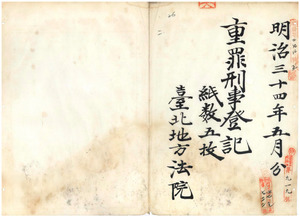 明治三十四年五月分
重罪刑事登記
紙数五枚
臺北地方法院